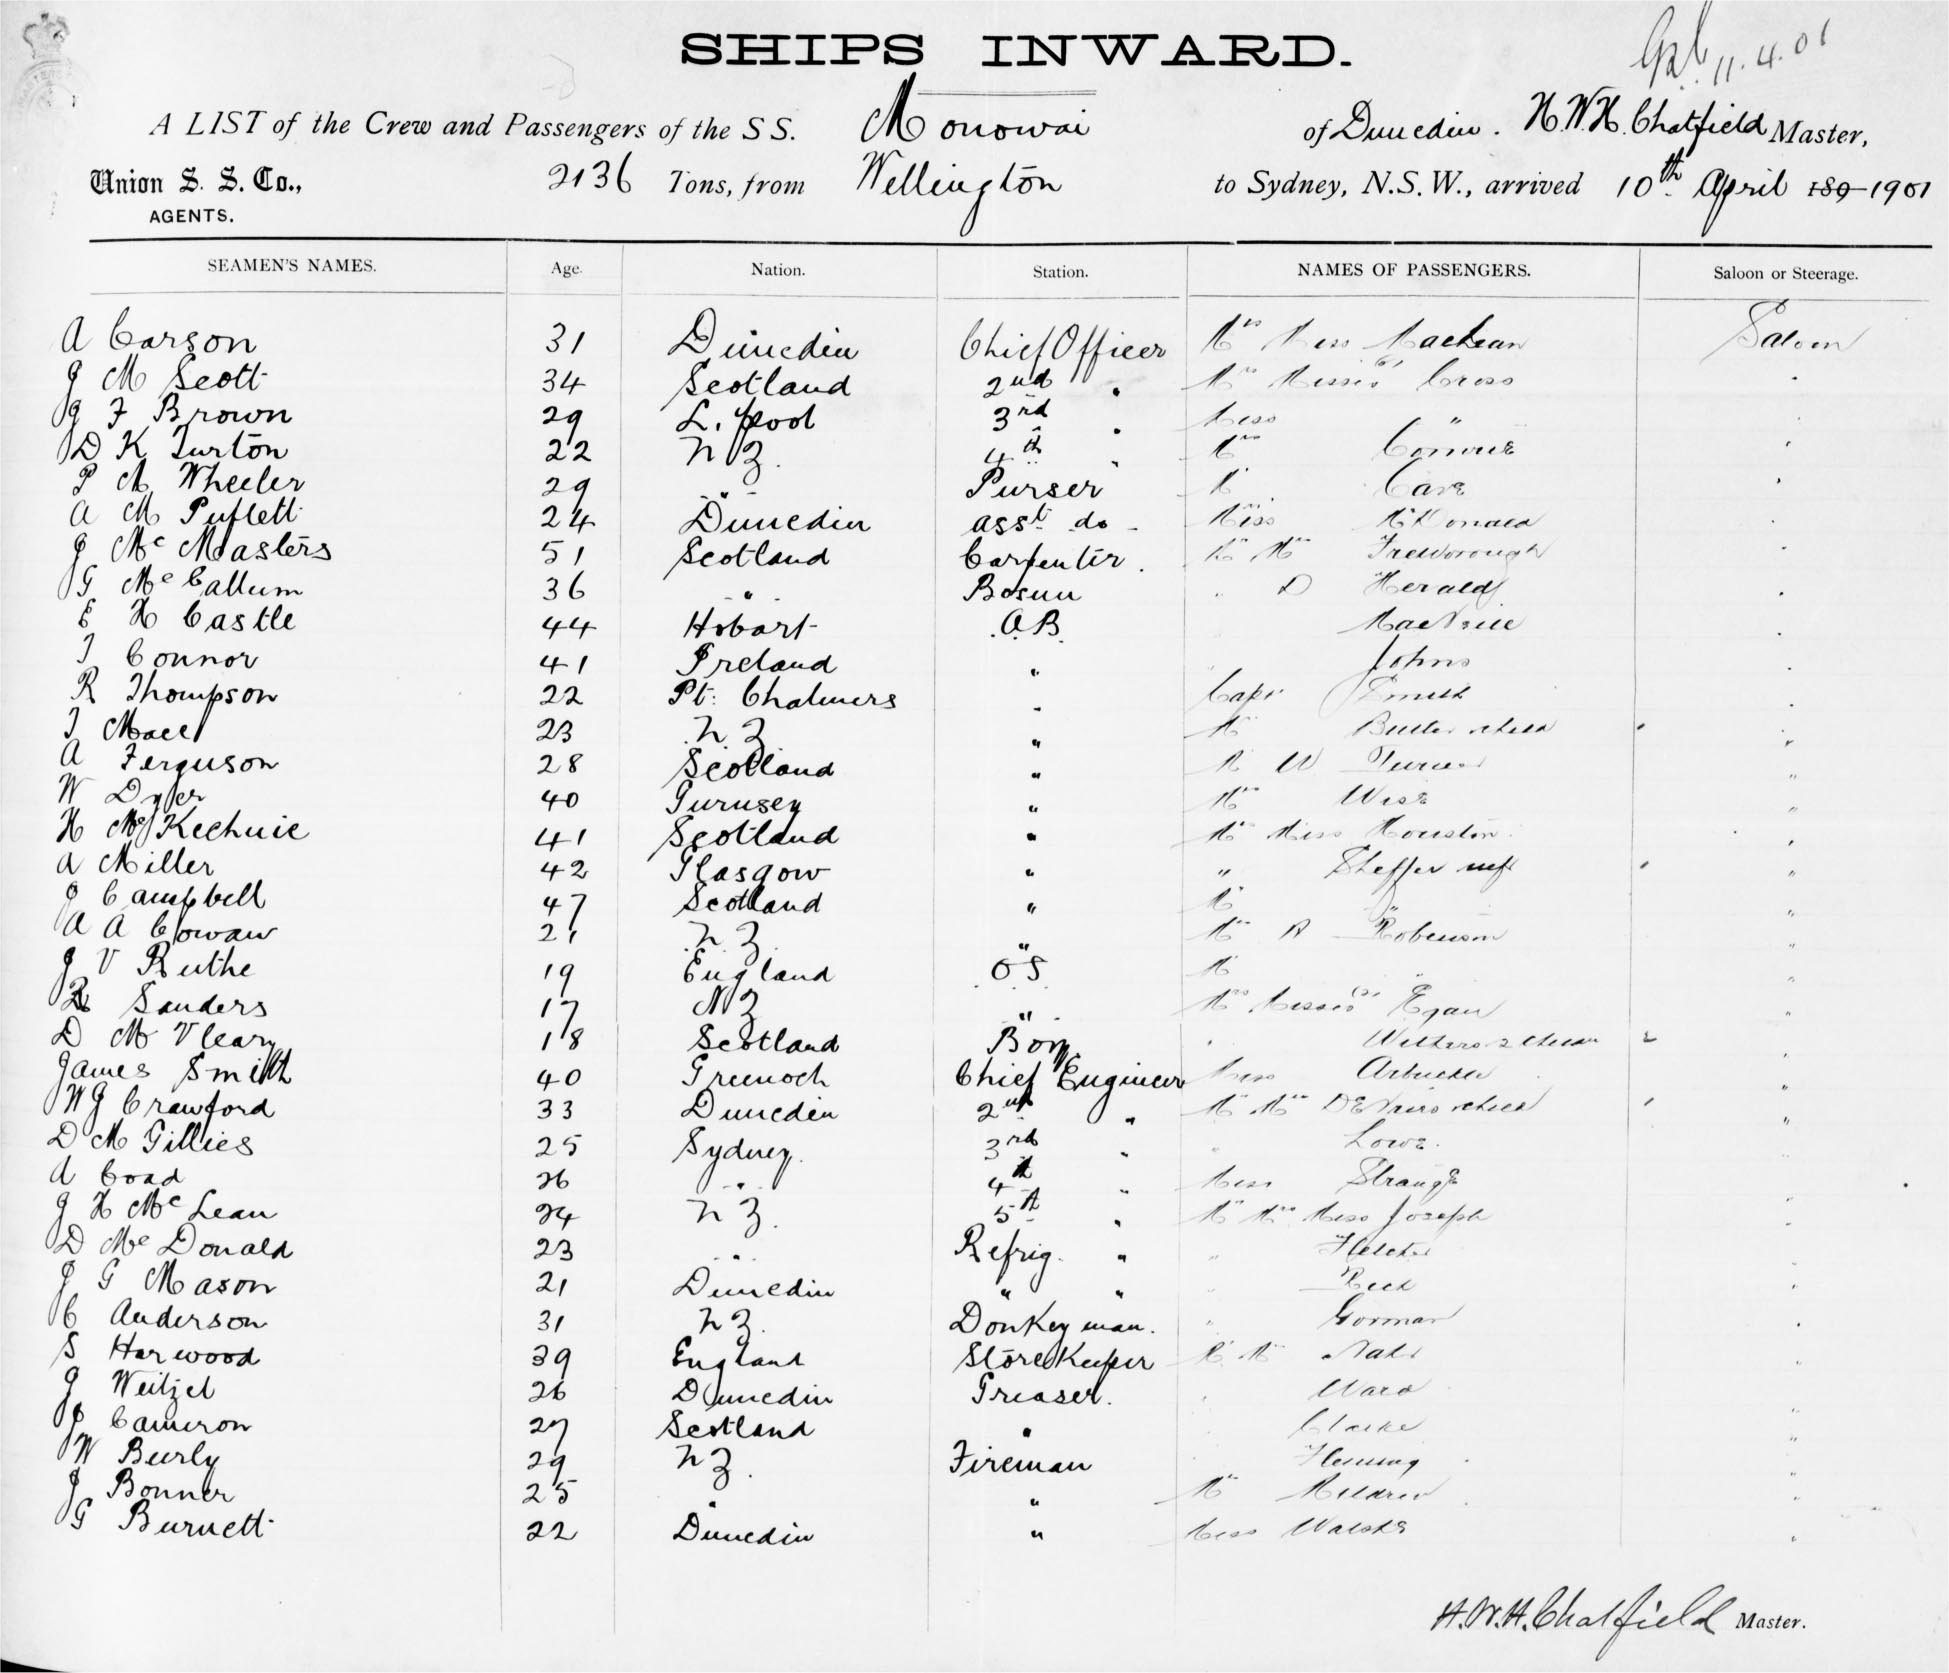 SHIPS INWARD.
11.4.01
A LIST of the Crew and Passengers of the S S. Monowai of Dunedin. H.W.H. Chatfield Master,
Union S. S. Co., 2136 Tons, from Wellington to Sydney, N.S.W., arrived 10th April 189 1901
AGENTS.
SEAMEN'S NAMES. Age. Nation. Station. NAMES OF PASSENGERS. Saloon or Steerage.
A Carson 31 Dunedin Chief Officer Mrs Miss MacLean Saloon
J M Scott 34 Scotland 2nd " Mrs Misses Cross "
J F Brown 29 L.pool 3rd " Miss " "
D K Turton 22 N Z. 4th " Mrs "
P M Wheeler 29 " Purser Cave "
A M Puflett 24 Dunedin asst do Miss McDonald "
J McMasters 51 Scotland Carpenter. Mr Mrs Treworough "
G McCallum 36 " Bosun " D Herald "
E H Castle 44 Hobart A.B. " MacNeill "
T Connor 41 Ireland " " Johns "
R Thompson 22 Pt: Chalmers " Capt Smith "
T Mace 23 N Z " "
A Ferguson 28 Scotland " W Turner "
W Dyer 40 Gurnsey " Wise "
H McKechnie 41 Scotland " Mrs Miss Houston "
A Miller 42 Glasgow " " "
J Campbell 47 Scotland " " "
A A Cowan 21 N Z " Robinson "
J V Ruthe 19 England O S " "
R Sanders 17 N Z " Mrs Misses (2) Egan "
D M Vleary 18 Scotland Boy "
James Smith 40 Greenock Chief Engineer Miss Arbuckle "
W J Crawford 33 Dunedin 2nd " Mr Mrs "
D M Gillies 25 Sydney. 3rd " " Lowe. "
A Coad 26 " 4th " Miss Strange
J H McLean 24 N Z. 5th " Mr Mrs Miss Joseph "
D McDonald 23 " Refrig. " " "
J G Mason 21 Dunedin " " " "
C Anderson 31 N Z. Donkeyman. " Gorman "
S Harwood 39 England Storekeeper "
J Weitzel 26 Dunedin Greaser. " Ward
J Cameron 27 Scotland " Clarke "
W Beerly 29 N Z. Fireman Fleming "
J Bonner 25 " " "
G Burnett 22 Dunedin " Miss "
H.W.H. Chatfield Master.